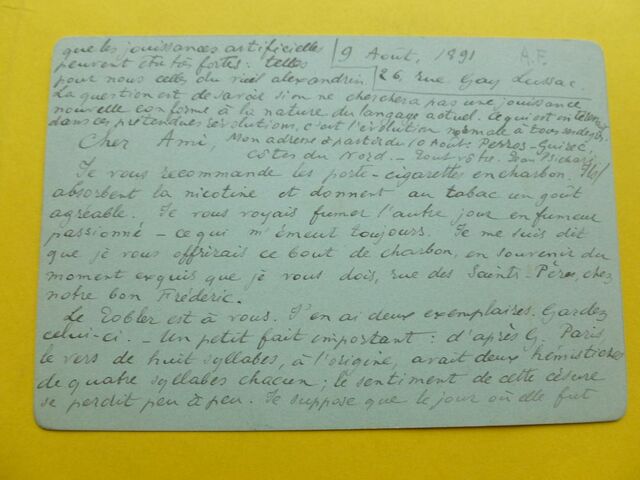 que les jouissances artificielles
peuvent être très fortes : telles
pour nous celles du vieil alexandrin
La question est de savoir si on ne cherchera pas une jouissance
nouvelle conforme à la nature du langage actuel. Ce qui est intéressant
dans ces prétendues révolutions, c'est l'évolution normale à tous
9 Août, 1891
A.F.
26, rue Gay Lussac.
Cher Ami, Mon adresse à partir du 10 Août : Perros-Guirec,
Côtes du Nord. – Tout vôtre. Jean Psichari
Je vous recommande les porte-cigarettes en charbon. Ils
absorbent la nicotine et donnent au tabac un goût
agréable. Je vous voyais fumer l'autre jour en fumeur
passionné – ce qui m'émeut toujours. Je me suis dit
que je vous offrirais ce bout de charbon, en souvenir du
moment exquis que je vous dois, rue des Saints-Pères, chez
notre bon Fréderic.
Le Tobler est à vous. J'en ai deux exemplaires. Gardez
celui-ci. – Un petit fait important : d'après G. Paris
le vers de huit syllabes, à l'origine, avait deux hémistiches
de quatre syllabes chacun ; le sentiment de cette césure
se perdit peu à peu. Je suppose que le jour où elle fut